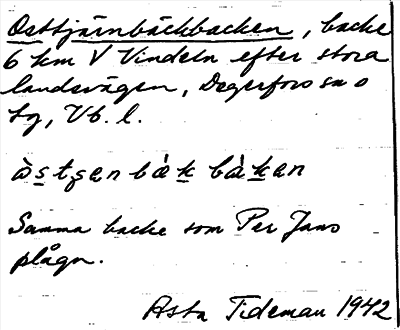 Osttjärnbäckbacken, backe
6 km V Vindeln efter stora
landsvägen, Degerfors sn o
lg, Vb. l.
òstʂen bæ̀k bàkan
Samma backe som Per Jans
plågn.
Asta Tideman 1942